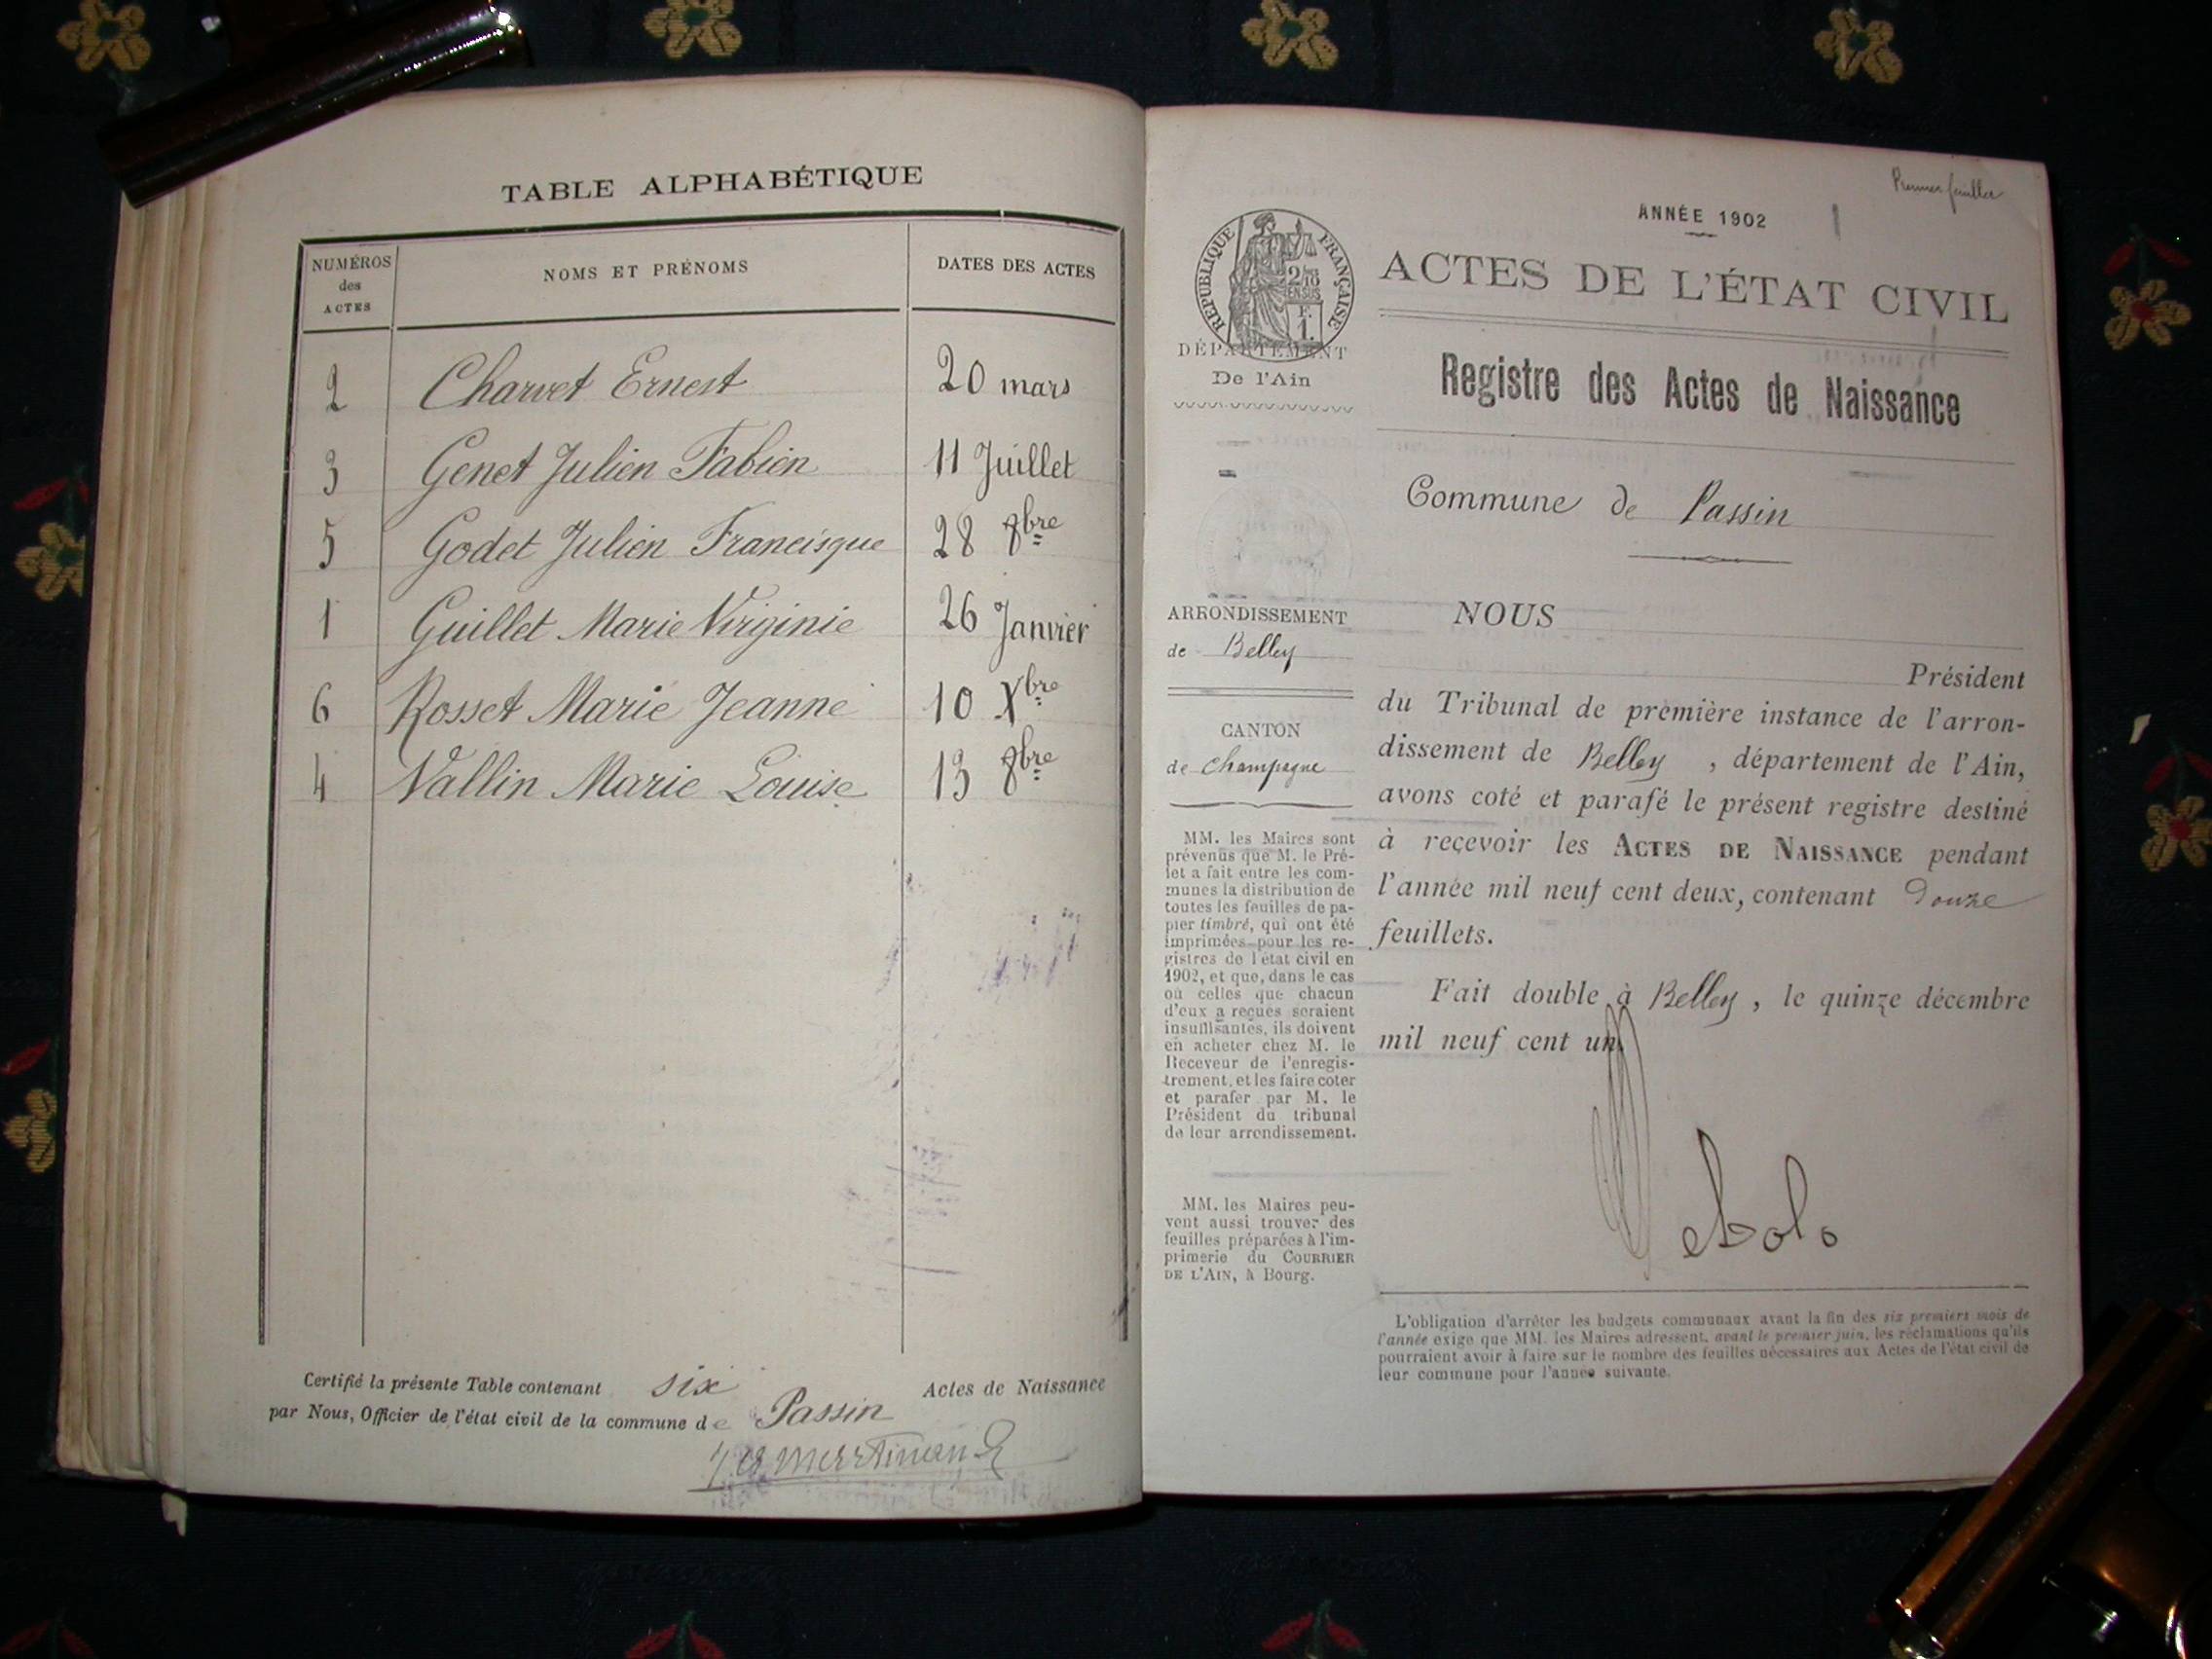 TABLE ALPHABÉTIQUE
NUMÉROS des ACTES
NOMS ET PRÉNOMS
DATES DES ACTES
2 Charvet Ernest 20 mars
3 Genet Julien Fabien 11 Juillet
5 Godet Julien Francisque 28 8bre
1 Guillet Marie Virginie 26 Janvier
6 Rosset Marie Jeanne 10 Xbre
4 Vallin Marie Louise 13 8bre
Certifié la présente Table contenant six Actes de Naissance
par Nous, Officier de l'état civil de la commune de Passin
Premier feuillet
ANNÉE 1902
ACTES DE L'ÉTAT CIVIL
RÉPUBLIQUE FRANÇAISE
2/10 EN SUS
F. 1.
DÉPARTEMENT
De l'Ain
Registre des Actes de Naissance
Commune de Passin
ARRONDISSEMENT
de Belley
CANTON
de Champagne
MM. les Maires sont
prévenus que M. le Pré-
fet a fait entre les com-
munes la distribution de
toutes les feuilles de pa-
pier timbré, qui ont été
imprimées pour les re-
gistres de l'état civil en
1902, et que, dans le cas
où celles que chacun
d'eux a reçues seraient
insuffisantes, ils doivent
en acheter chez M. le
Receveur de l'enregis-
trement, et les faire coter
et parafer par M. le
Président du tribunal
de leur arrondissement.
MM. les Maires peu-
vent aussi trouver des
feuilles préparées à l'im-
primerie du COURRIER
DE L'AIN, à Bourg.
NOUS
Président
du Tribunal de première instance de l'arron-
dissement de Belley, département de l'Ain,
avons coté et parafé le présent registre destiné
à recevoir les ACTES DE NAISSANCE pendant
l'année mil neuf cent deux, contenant Douze
feuillets.
Fait double à Belley, le quinze décembre
mil neuf cent un.
L'obligation d'arrêter les budgets communaux avant la fin des six premiers mois de
l'année exige que MM. les Maires adressent, avant le premier juin, les réclamations qu'ils
pourraient avoir à faire sur le nombre des feuilles nécessaires aux Actes de l'état civil de
leur commune pour l'année suivante.